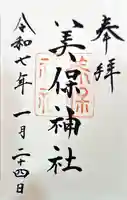 奉拝
美保神社
令和七年一月二十四日